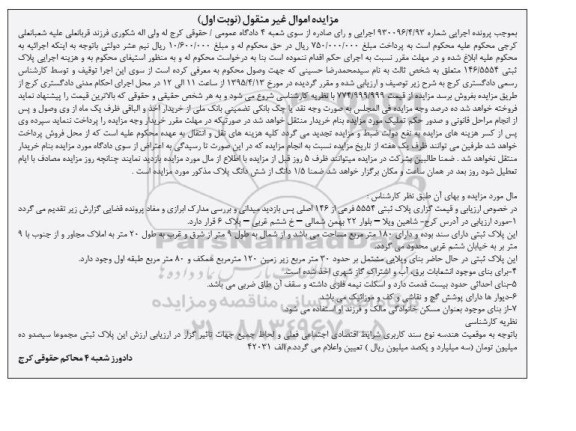 مزایده اموال غیر منقول (نوبت اول)
بموجب پرونده اجرایی شماره ۹۳۰۰۹۶/۴/۹۳ اجرایی و رای صادره از سوی شعبه ۴ دادگاه عمومی / حقوقی کرج له ولی اله شکوری فرزند قربانعلی علیه شعبانعلی
کرجی محکوم علیه محکوم است به پرداخت مبلغ ۷۵۰/۰۰۰/۰۰۰ ریال در حق محکوم له و مبلغ ۱۰/۶۰۰/۰۰۰ ریال نیم عشر دولتی باتوجه به اینکه اجرائیه به
محکوم علیه ابلاغ شده و در مهلت مقرر نسبت به اجرای حکم اقدام ننموده است بنا به درخواست محکوم له و به منظور استیفای محکوم به و هزینه اجرایی پلاک
ثبتی ۱۴۶/۵۵۵۴ متعلق به شخص ثالث به نام سیدمحمدرضا حسینی که جهت وصول محکوم به معرفی کرده است از سوی این اجرا توقیف و توسط کارشناس
رسمی دادگستری کرج به شرح زیر توصیف و ارزیابی شده و مقرر گردیده در مورخ ۱۳۹۵/۴/۱۳ از ساعت ۱۱ الی ۱۲ در محل اجرای احکام مدنی دادگستری کرج از
طریق مزایده بفروش برسد مزایده از قیمت ۷۷۴/۹۹۹/۹۹۹ با نظریه کارشناسی شروع می شود و به هر شخص حقیقی و حقوقی که بالاترین قیمت را پیشنهاد نماید
فروخته خواهد شد ده درصد وجه مزایده فی المجلس به صورت وجه نقد یا چک بانکی تضمینی بانک ملی از خریدار اخذ و الباقی ظرف یک ماه از وی وصول و پس
از انجام مراحل قانونی و صدور حکم تملیک مورد مزایده بنام خریدار منتقل خواهد شد در صورتیکه در مهلت مقرر خریدار وجه مزایده را پرداخت ننماید سپرده وی
پس از کسر هزینه های مزایده به نفع دولت ضبط و مزایده تجدید می گردد کلیه هزینه های نقل و انتقال به عهده محکوم علیه است که از محل فروش پرداخت
خواهد شد طرفین می توانند ظرف یک هفته از تاریخ مزایده نسبت به انجام مزایده که در این صورت تا رسیدگی به اعتراض از سوی دادگاه مورد مزایده بنام خریدار
منتقل نخواهد شد . ضمنا طالبین شرکت در مزایده میتوانند ظرف ۵ روز قبل از مزایده با اطلاع از مال مورد مزایده بازدید نمایند چنانچه روز مزایده مصادف با ایام
تعطیل شود روز بعد در همان ساعت و مکان برگزار خواهد شد ضمنا ۱/۵ دانگ از شش دانگ پلاک مذکور مورد مزایده است .
مال مورد مزایده و بهای آن طبق نظر کارشناس :
در خصوص ارزیابی و قیمت گزاری پلاک ثبتی ۵۵۵۴ فرعی از ۱۴۶ اصلی پس بازدید میدانی و بررسی مدارک ابرازی و مفاد پرونده قضایی گزارش زیر تقدیم می گردد
۱-مورد ارزیابی در آدرس کرج– شاهین ویلا – بلوار ۲۲ بهمن شمالی – خ ششم غربی – پلاک ۶ قرار دارد.
این پلاک ثبتی دارای سند بوده و دارای ۱۸۰ متر مربع مساحت می باشد و از شمال به طول ۹ متر از شرق و غرب به طول ۲۰ متر به املاک مجاور و از جنوب با ۹
متر بر به خیابان ششم غربی محدود می گردد.
این پلاک ثبتی در حال حاضر بنای ویلایی مشتمل بر حدود ۳۰ متر مربع زیر زمین ۱۲۰ مترمربع همکف و ۸۰ متر مربع طبقه اول وجود دارد.
۴-برای بنای موجود انشعابات برق، آب و اشتراک گاز شهری اخذ شده است.
۵-بنای احداثی حدود بیست قدمت دارد و اسکلت نیمه فلزی داشته و سقف آن طاق ضربی می باشد.
۶-دیوار ها دارای پوشش گچ و نقاشی و کف و موزائیک می باشد
۷-از بنای موجود بعنوان مسکن خانوادگی مالک و فرزند او استفاده می شود.
نظریه کارشناسی
باتوجه به موقعیت هندسه نوع سند کاربری شرایط اقتصادی اجتماعی فعلی و لحاظ جمیع جهات تاثیر گزار در ارزیابی ارزش این پلاک ثبتی مجموعا سیصدو ده
میلیون تومان (سه میلیارد و یکصد میلیون ریال ) تعیین واعلام می گردد.م الف ۴۲۰۳۱
دادورز شعبه ۴ محاکم حقوقی کرج